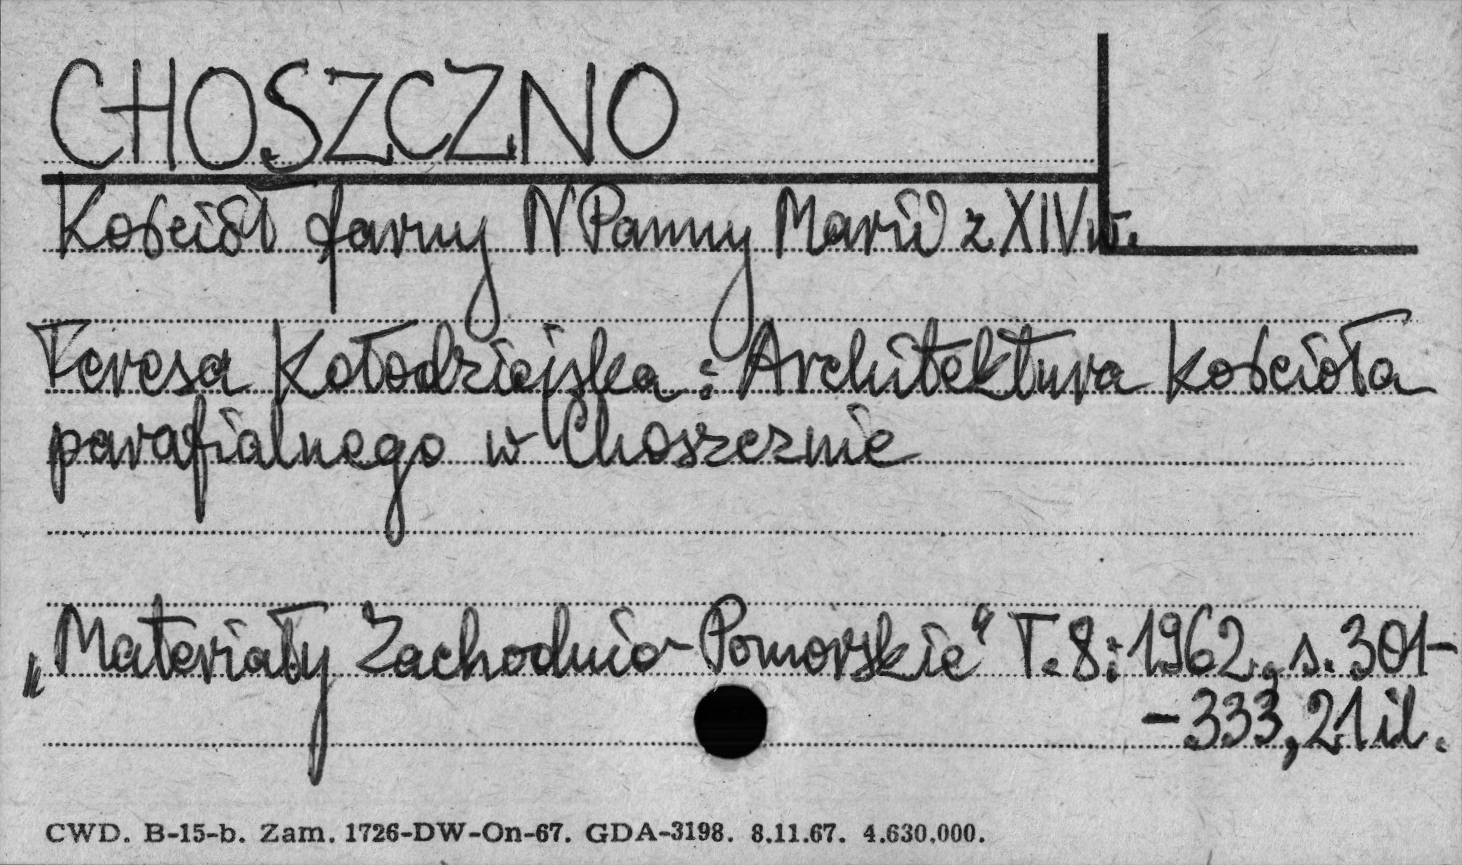 CHOSZCZNO
Kościół farny N Panny Marii z XIV w.
Teresa Kołodziejska : Architektura kościoła
parafialnego w Choszcznie
„Materiały Zachodnio-Pomorskie" T. 8: 1962, s. 301-
-333, 21 il.
CWD. B-15-b. Zam. 1726-DW-On-67. GDA-3198. 8.11.67. 4.630.000.